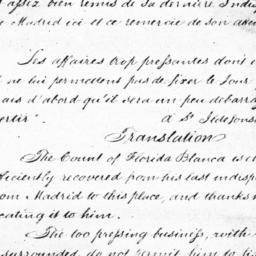 assez bien remis de sa dernière Indis
Madrid ici et ce remercie de son
Ses affaires trop pressantes dont
ne lui permettent pas de fixer le Jour
ais d'abord qu'il sera un peu débarr
ertir. a St Ildefons
Translation
The Count of Florida Blanca is
ficiently recovered from his last indisp
om Madrid to this place, and thanks
cating it to him.
The too pressing business, with
surrounded do not permit him to fix